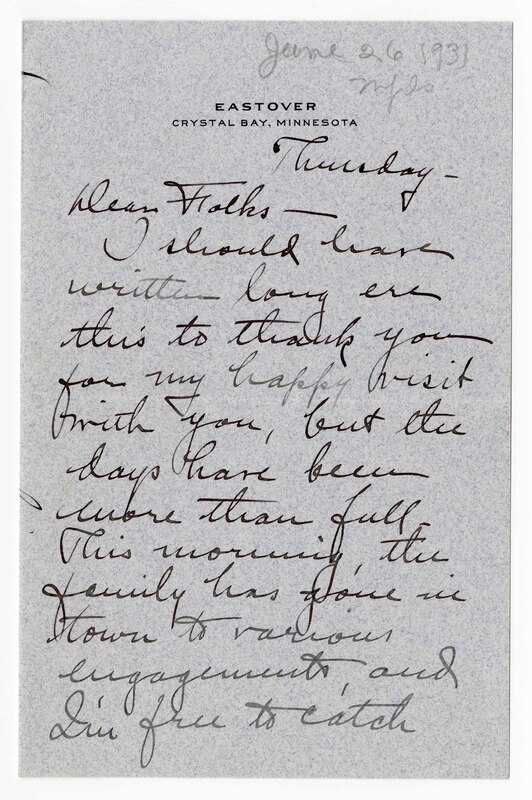 June 26 1931
Mpls
EASTOVER
CRYSTAL BAY, MINNESOTA
Thursday -
Dear Folks -
I should have
written long ere
this to thank you
for my happy visit
with you, but the
days have been
more than full.
This morning, the
family has gone in
town to various
engagements, and
I'm free to catch